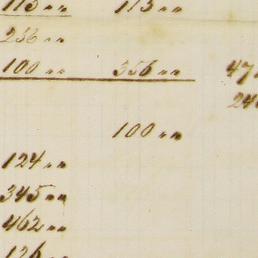 115 " " 115 " "
256 " "
100 " " 356 " " 47
24
100 " "
124 " "
345 " "
462 " "
126 " "